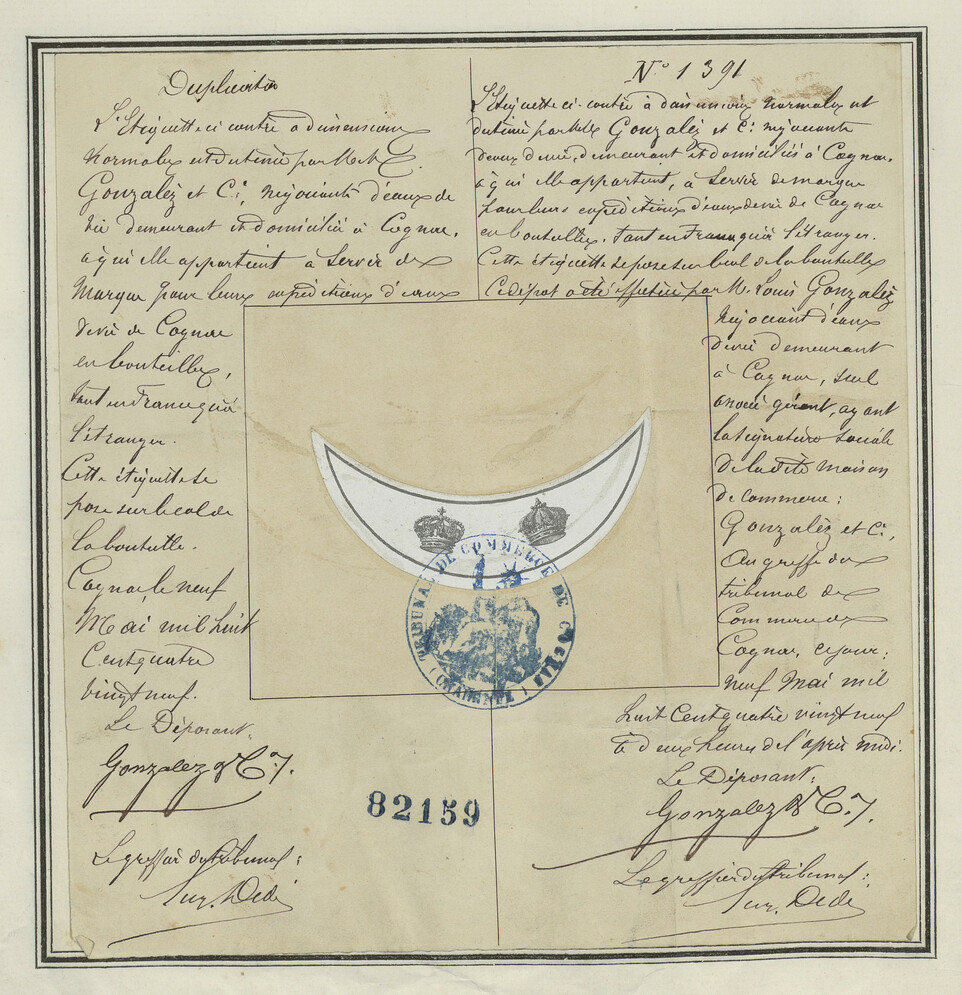 Duplicata
L'Etiquette ci contre a dimensions
Normales est destinée par M.M.
Gonzalèz et Ci, Négociants d'eaux de
vie demeurant et domiciliés à Cognac,
à qui elle appartient à Servir de
Marque pour leurs expéditions d'eaux
de vie de Cognac
en bouteilles,
tant en France qu'à
l'étranger.
Cette étiquette se
pose sur le col de
la bouteille.
Cognac, le neuf
Mai mil huit
Cent quatre
vingt neuf.
Le Déposant:
Gonzalez & C.
Le greffier du tribunal:
N° 1391
L'Etiquette ci-contre à dimensions normales est
destinée par M.M. Gonzalèz et Ci négociants
d'eaux de vie, demeurant et domiciliés à Cognac,
à qui elle appartient, à Servir de marque
pour leurs expéditions d'eaux de vie de Cognac
en bouteilles, tant en France qu'à l'étranger.
Cette étiquette se pose sur le col de la bouteille
Ce dépôt a été effectué par M. Louis Gonzalèz
Négociant d'eaux
de vie demeurant
à Cognac, seul
associé gérant, ayant
la signature sociale
de la dite maison
de commerce:
Gonzalèz et Ci,
Au greffe du
tribunal de
Commerce de
Cognac, ce jour:
neuf Mai mil
huit Cent quatre vingt neuf
à deux heures de l'après midi.
Le Déposant:
Gonzalez & C.
Le greffier du tribunal:
TRIBUNAL DE COMMERCE DE COGNAC
(CHARENTE)
82159